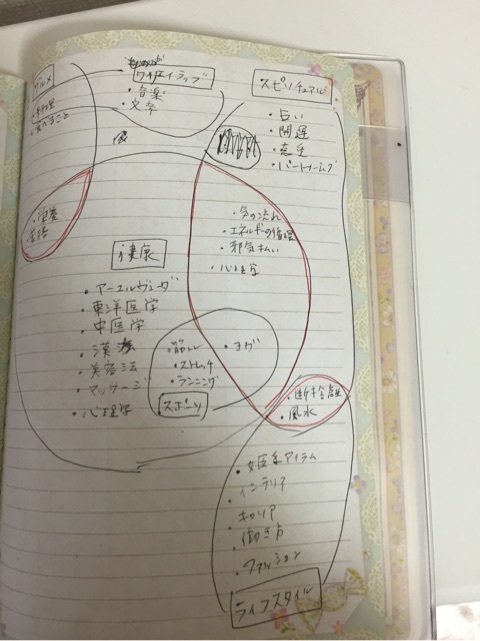 グルメ
・料理
・食べること
クリエイティブ
・音楽
・文章
スピリチュアル
・占い
・開運
・恋愛
・パートナーシップ
・栄養
・気の流れ
・エネルギーの循環
・邪気払い
・心理学
健康
・アーユルヴェーダ
・東洋医学
・中医学
・漢方
・美容法
・マッサージ
・心理学
・筋トレ
・ヨガ
・ストレッチ
・ランニング
スポーツ
・断捨離
・風水
・インテリア
・キャリア
・働き方
・ファッション
ライフスタイル